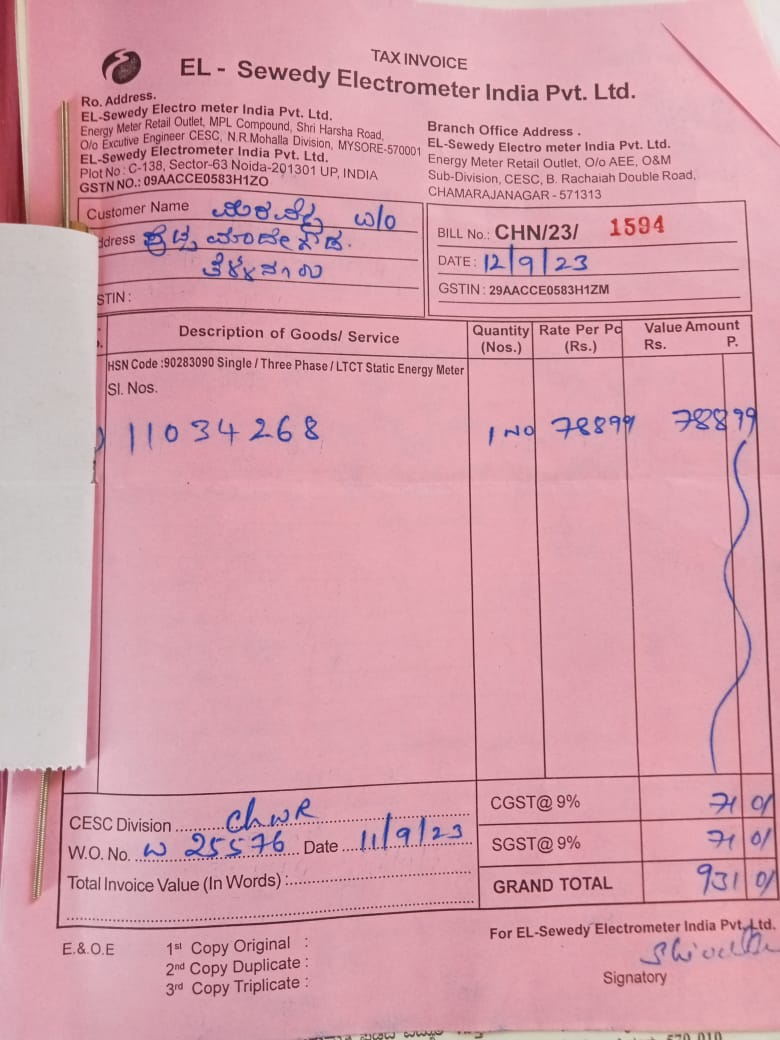 TAX INVOICE
EL - Sewedy Electrometer India Pvt. Ltd.
Ro. Address.
EL-Sewedy Electro meter India Pvt. Ltd.
Energy Meter Retail Outlet, MPL Compound, Shri Harsha Road,
O/o Excutive Engineer CESC, N.R.Mohalla Division, MYSORE-570001
EL-Sewedy Electrometer India Pvt. Ltd.
Plot No : C-138, Sector-63 Noida-201301 UP, INDIA
GSTN NO.: 09AACCE0583H1ZO
Branch Office Address .
EL-Sewedy Electro meter India Pvt. Ltd.
Energy Meter Retail Outlet, O/o AEE, O&M
Sub-Division, CESC, B. Rachaiah Double Road,
CHAMARAJANAGAR - 571313
Customer Name W/O
ddress
STIN :
BILL No.: CHN/23/ 1594
DATE : 12/9/23
GSTIN : 29AACCE0583H1ZM
Description of Goods/ Service Quantity (Nos.) Rate Per Pc (Rs.) Value Amount Rs. P.
HSN Code :90283090 Single / Three Phase / LTCT Static Energy Meter
Sl. Nos.
11034268 1 NO 78899 788 99
CESC Division ChNR
W.O. No. W 25576 Date 11/9/23
Total Invoice Value (In Words) :
CGST@ 9% 71 01
SGST@ 9% 71 01
GRAND TOTAL 931 01
For EL-Sewedy Electrometer India Pvt. Ltd.
Signatory
E.&.O.E 1st Copy Original :
2nd Copy Duplicate :
3rd Copy Triplicate :